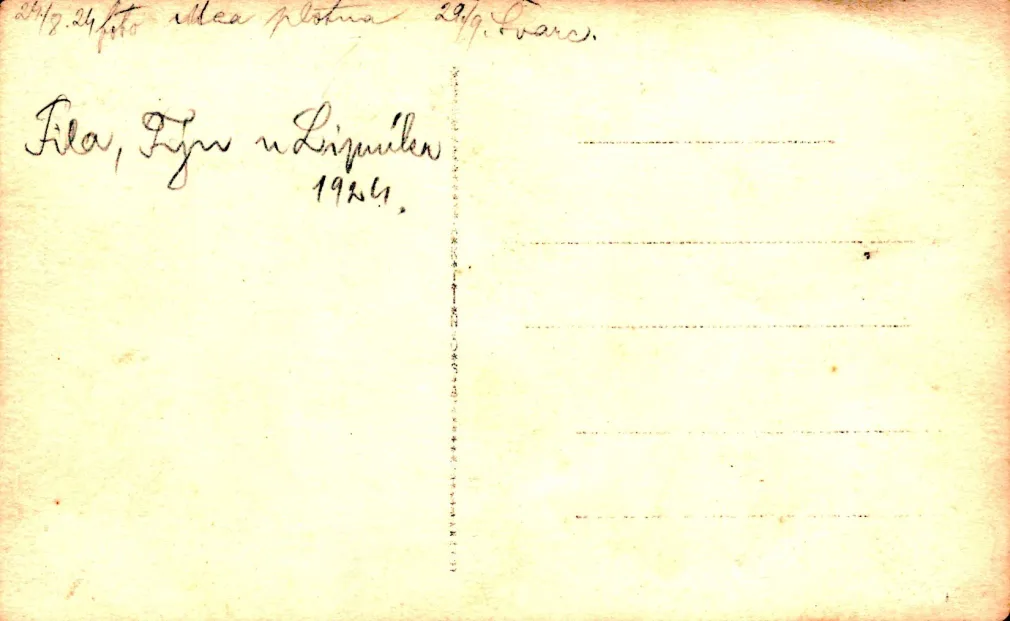 24/8.24 foto Mea plotna 29/9. Švarc.
Fila, Týn u Lipníka
1924.